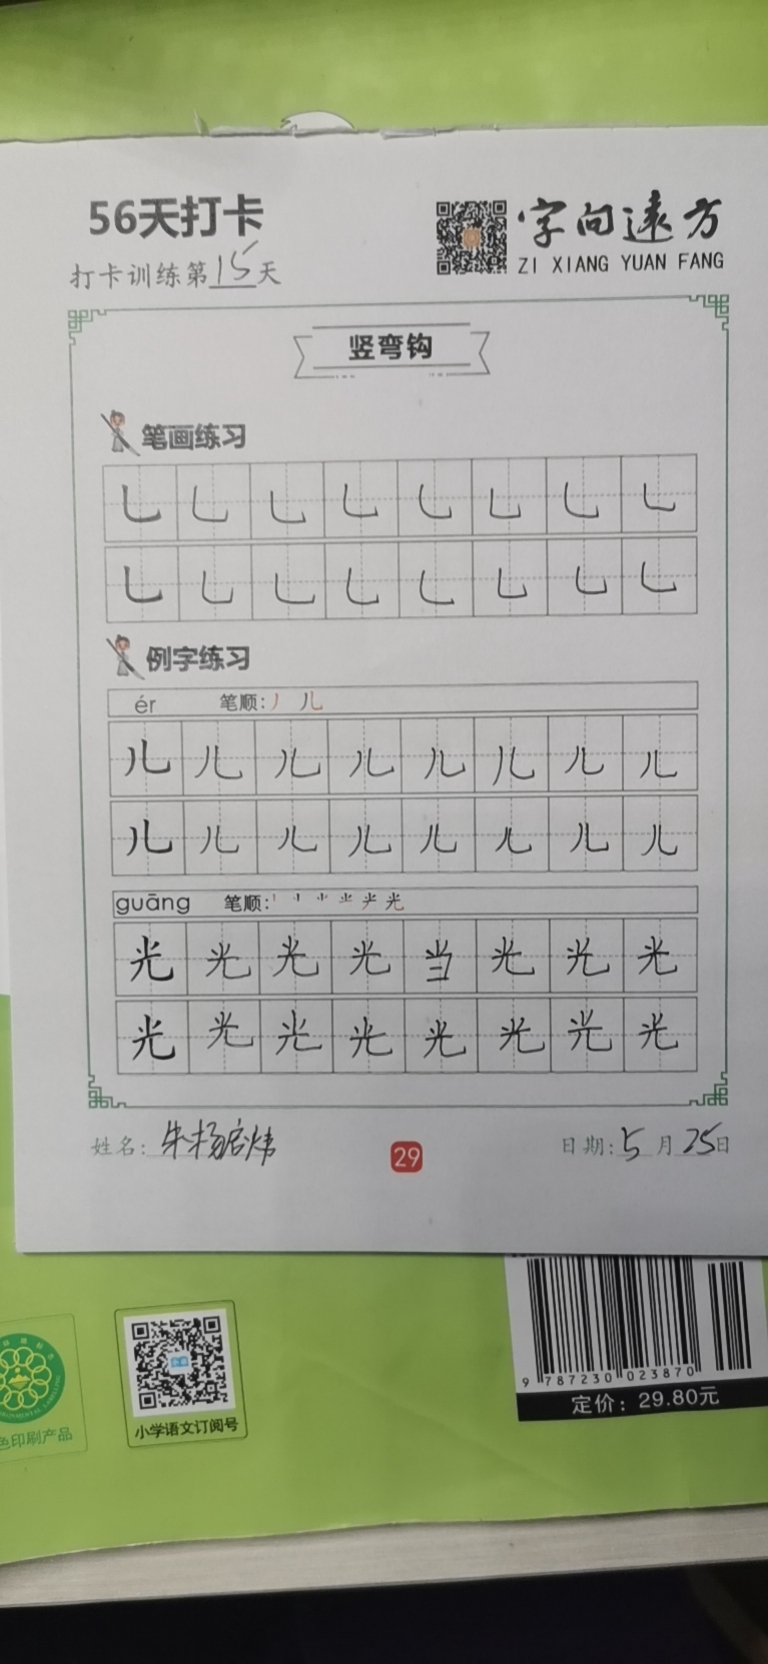 56天打卡
字向远方
打卡训练第15天
ZI XIANG YUAN FANG
竖弯钩
笔画练习
乚 乚 乚 乚 乚 乚 乚 乚
乚 乚 乚 乚 乚 乚 乚 乚
例字练习
ér 笔顺:丿 儿
儿 儿 儿 儿 儿 儿 儿 儿
儿 儿 儿 儿 儿 儿 儿 儿
guāng 笔顺:
光 光 光 光 当 光 光 光
光 光 光 光 光 光 光 光
姓名:朱杨启炜
29
日期:5月25日
9 787230 023870
定价：29.80元
小学语文订阅号
色印刷产品